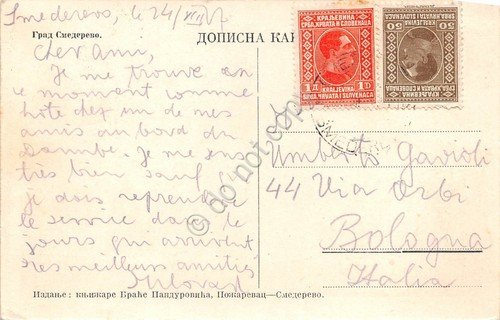 Smederevo, le 24/VIII/27
Град Смедерево.
ДОПИСНА КАР
Cher ami,
Je me trouve en
ce moment comme
hôte chez un de mes
amis au bord du
Danube. Je me sens
très bien sauf que
je dois reprendre
le service dans les
jours qui arrivent
mes meilleurs amitiés
КРАЉЕВИНА
СРБА, ХРВАТА И СЛОВЕНАЦА
1 Д
KRALJEVINA
SRBA, HRVATA I SLOVENACA
1 D
50
КРАЉЕВИНА
СРБА, ХРВАТА И СЛОВЕНАЦА
50
KRALJEVINA
SRBA, HRVATA I SLOVENACA
Umberto Gavioli
44 Via Orbi
Bologna
Italia
Издање: књижаре Браће Пандуровића, Пожаревац—Смедерево.
do not copy